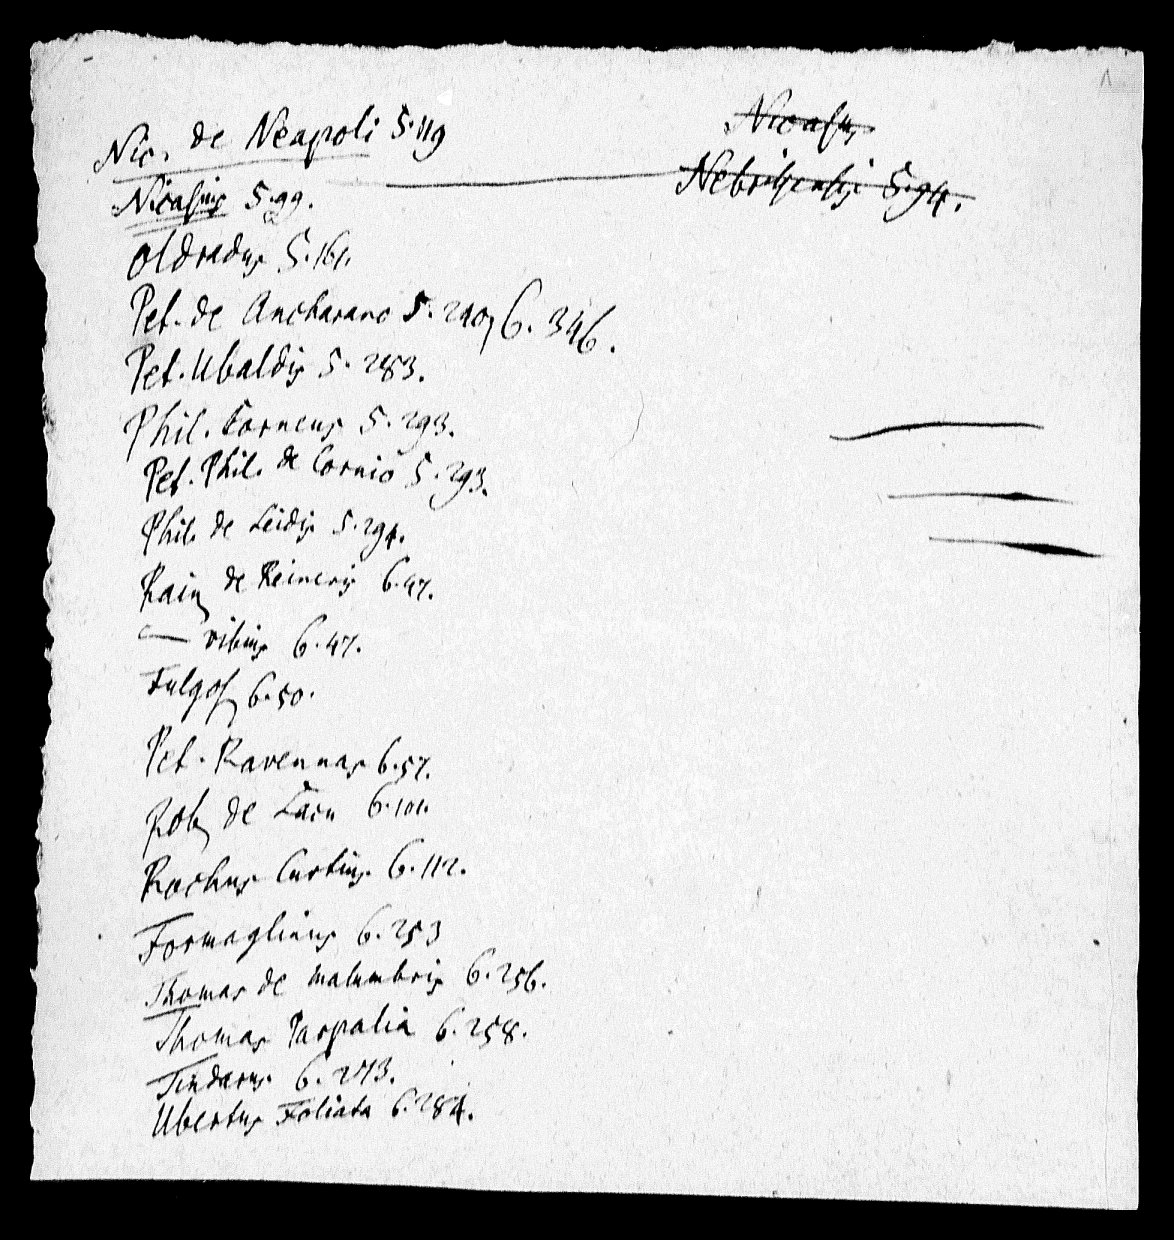 Nic. de Neapoli 5.119
Nicasius 5.99.
Oldradus 5.161.
Pet. de Ancharano 5.240, 6.346.
Pet. Ubaldis 5.283.
Phil. Corneus 5.293.
Pet. Phil. de Cornio 5.293.
Phil. de Leidis 5.294.
Rain de Reineris 6.47.
— 6.47.
Fulgos 6.50.
Pet. Ravennas 6.57.
Rob de 6.101.
Rochus Curtius 6.112.
Formaglinus 6.253
Thomas de Malumbris 6.256.
Thomas Parpalia 6.258.
Tindarus 6.273.
Ubertus Foliata 6.284.
Nicasius
Nebrissensis 5.94.